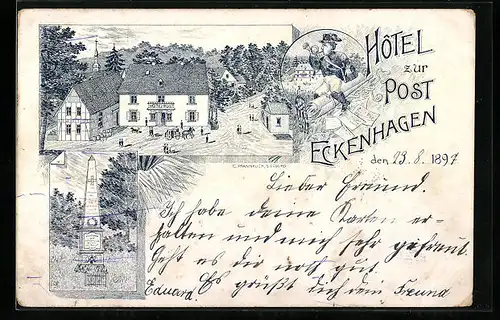 HÔTEL
zur
POST
ECKENHAGEN
den 23.8.1897
Lieber Freund.
Ich habe deine Karten er-
halten und mich sehr gefreut.
Geht es dir noch gut.
Es grüßt dich dein Freund
Eduard.